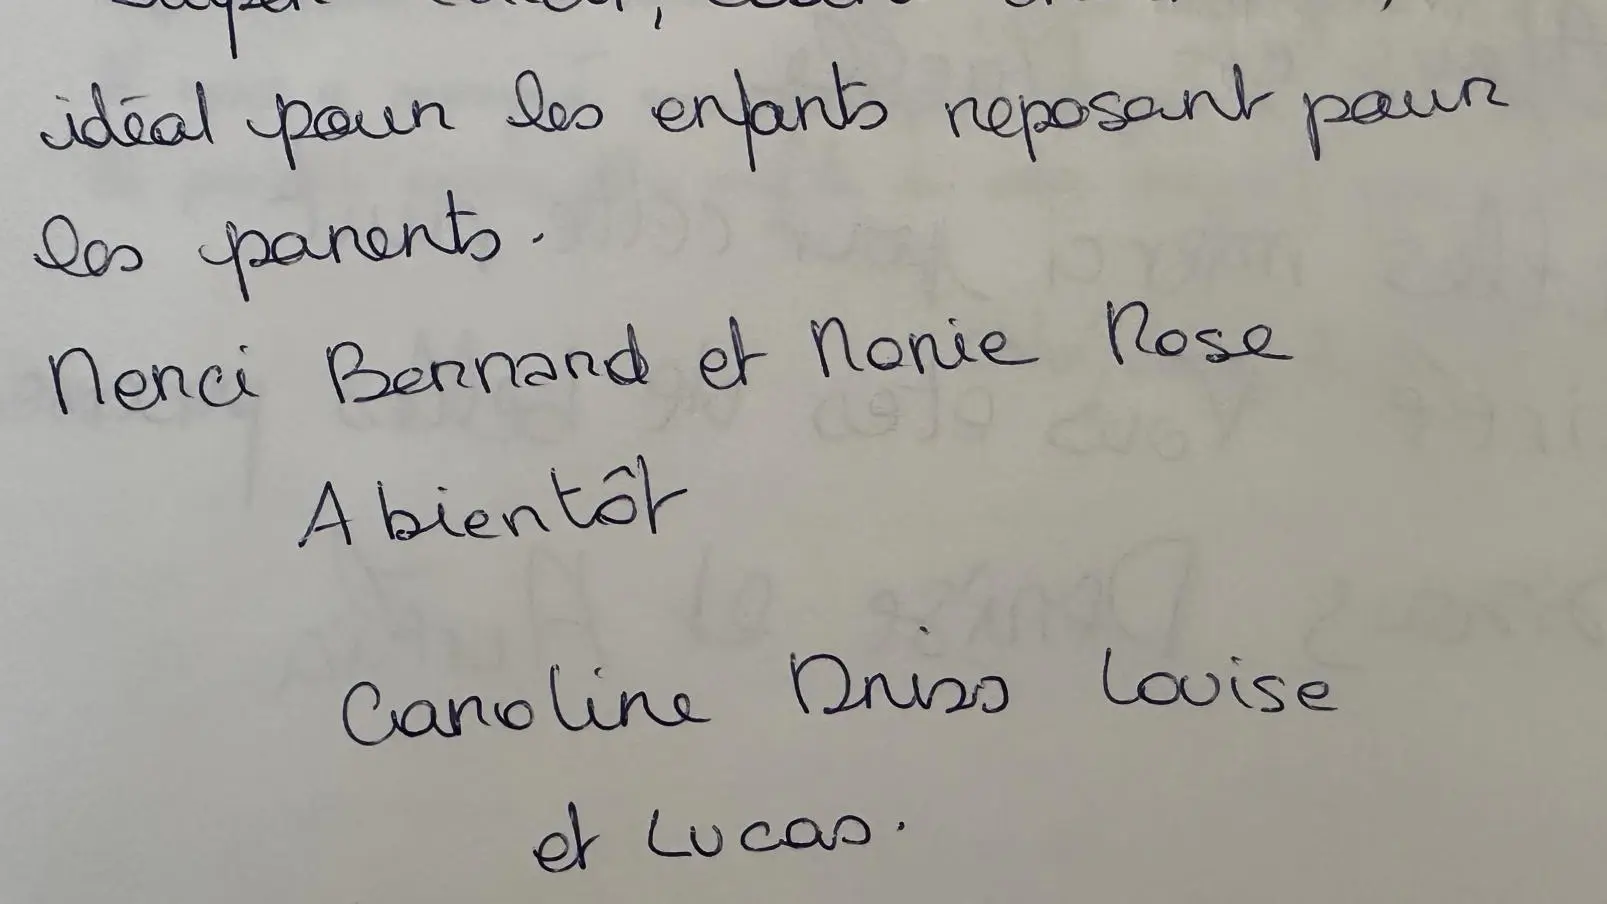 idéal pour les enfants reposant pour
les parents.
Merci Bernard et Marie Rose
A bientôt
Caroline Driss Louise
et Lucas.